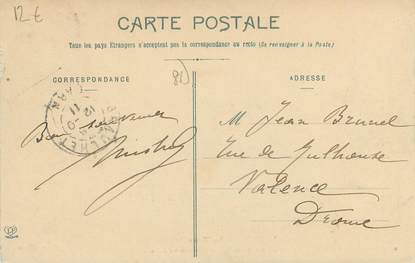 12 €
CARTE POSTALE
Tous les pays Etrangers n'acceptent pas la correspondance au recto (Se renseigner à la Poste)
CORRESPONDANCE
ADRESSE
TARN
12
11
Bon souvenir
M Jean Brunel
Rue de Mulhouse
Valence
Drome